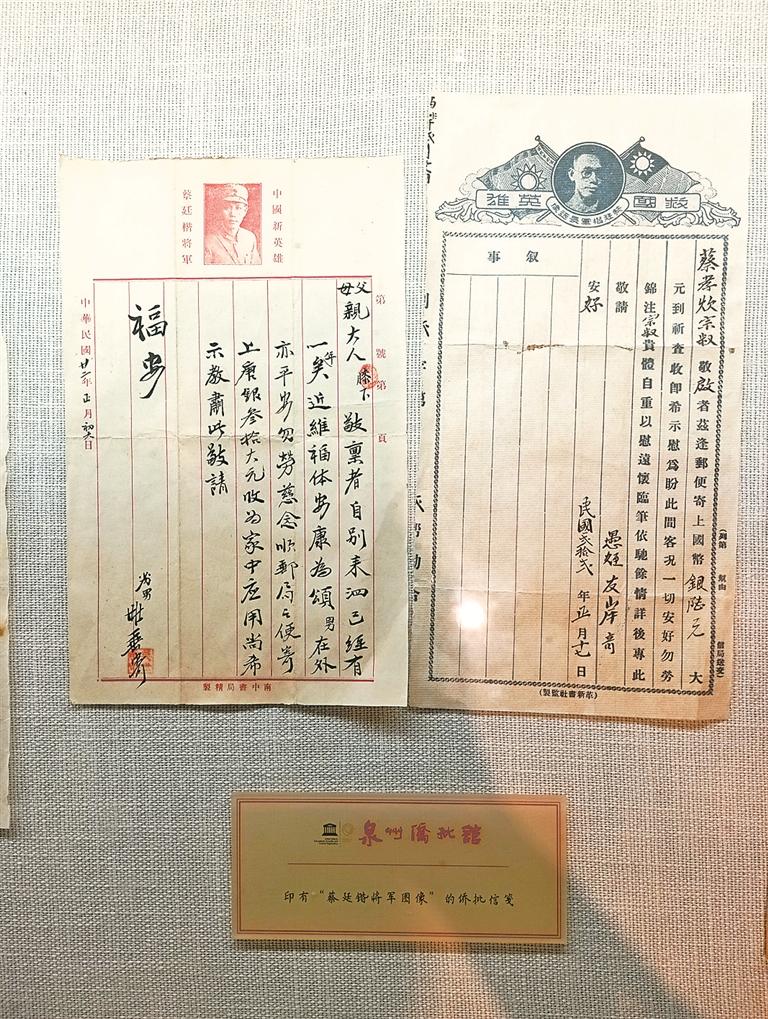 中國新英雄
蔡廷楷將軍
第 號第 頁
父母親大人膝下 敬稟者自別来泗已經有
一年矣近維福体安康為頌男在外
亦平安勿勞慈念順郵局之便寄
上廣銀叁拾大元收為家中应用尚希
示教肅此敬請
福安
華寄
中華民國廿二年正月初六日
南中書局精製
救國英雄
叙事
蔡孝炊宗叔 敬啟者茲逢郵便寄上國幣銀陸元 大
元到祈查收即希示慰為盼此間客況一切安好勿勞
錦注宗叔貴體自重以慰遠懷臨筆依馳餘情詳後專此
敬請
安好
愚姪友岸寄
民國弍拾弍年正月十七日
(革新書社監製)
泉州僑批館
印有“蔡廷锴将军图像”的侨批信笺